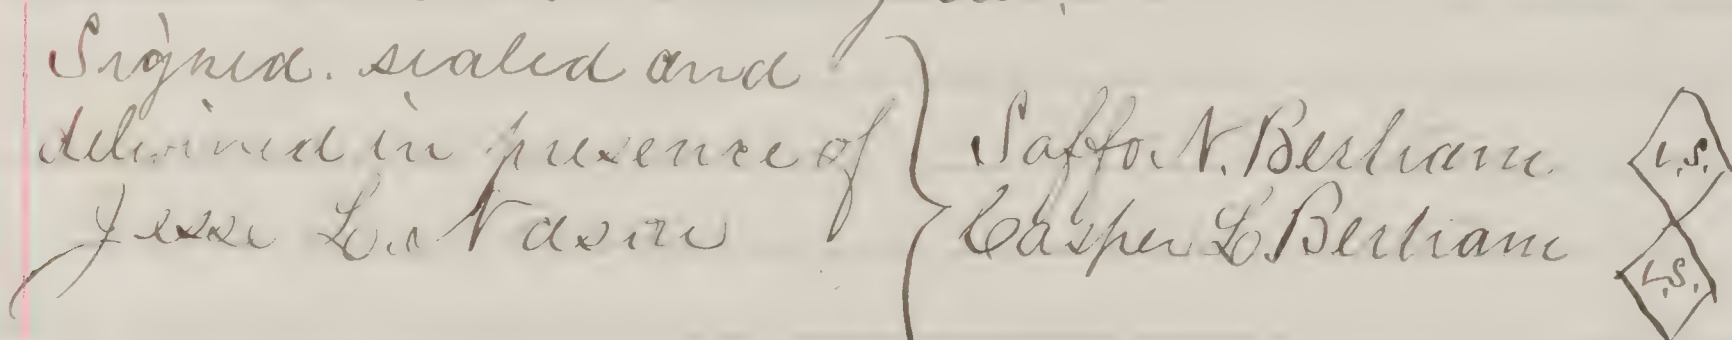 Signed. sealed and
delivered in presence of
Jesse L. Nason
Saffo N. Bertram L.S.
Casper L. Bertram L.S.